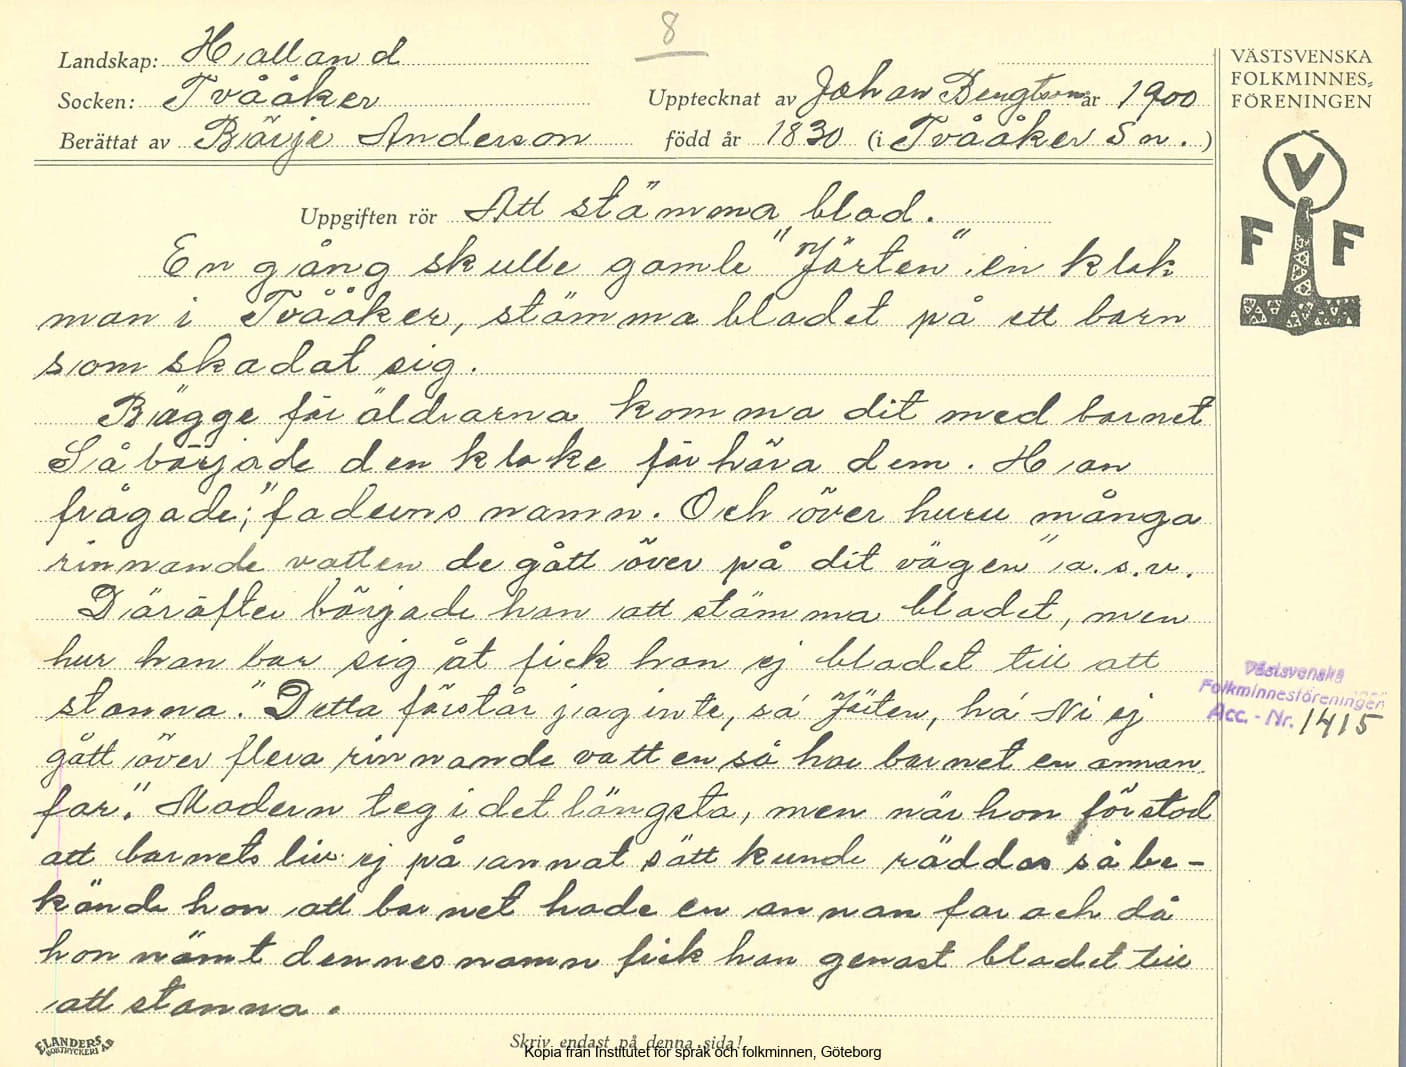 8
Landskap: Halland
Socken: Tvååker
Upptecknat av Johan Bengtson år 1900
Berättat av Börje Anderson född år 1830 (i Tvååker Sn.)
VÄSTSVENSKA
FOLKMINNES-
FÖRENINGEN
V
F F
Uppgiften rör Att stämma blod.
En gång skulle gamle "Jörten" en klok
man i Tvååker, stämma blodet på ett barn
som skadat sig.
Bägge föräldrarna komma dit med barnet
Så började den kloke förhöra dem. Han
frågade; "faderns namn. Och över huru många
rinnande vatten de gått över på dit vägen" o.s.v.
Däräfter började han att stämma blodet, men
hur han bar sig åt fick han ej blodet till att
stanna. "Detta förstår jag inte, sa Jörten, ha Ni ej
gått över flera rinnande vatten så har barnet en annan
far". Modern teg i det längsta, men när hon förstod
att barnets liv ej på annat sätt kunde räddas så be-
kände hon att barnet hade en annan far och då
hon nämt dennes namn fick han genast blodet till
att stanna.
Västsvenska
Folkminnesföreningen
Acc. - Nr. 1415
ELANDERS
BOKTRYCKERI AB
Skriv endast på denna sida!
Kopia från Institutet för språk och folkminnen, Göteborg